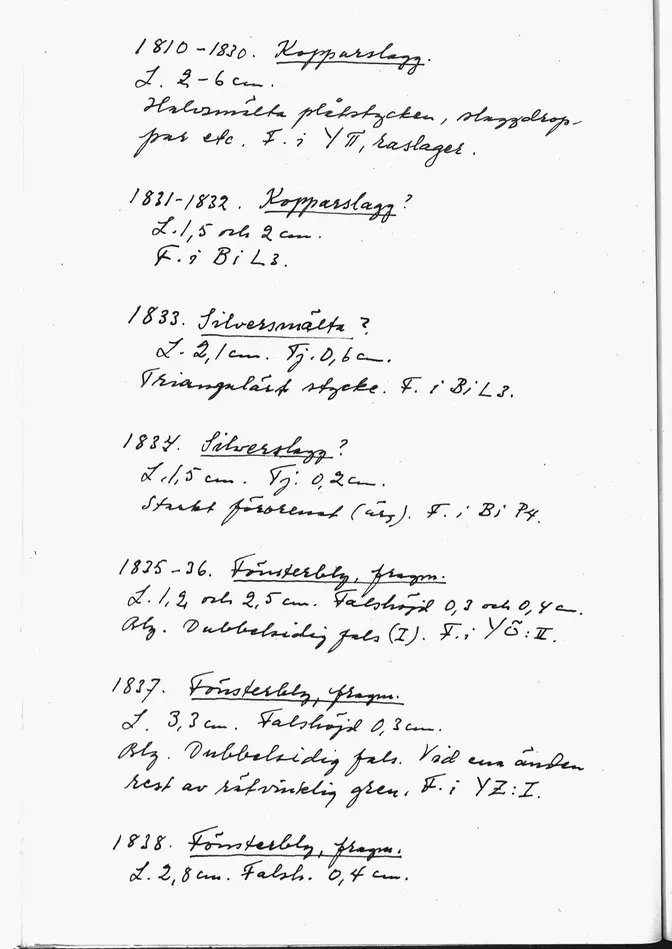 1810-1830. Kopparslagg.
L. 2-6 cm.
Halvsmälta plåtstycken, slaggdrop-
par etc. F. i YΠ, raslager.
1831-1832. Kopparslagg?
L. 1,5 och 2 cm.
F. i Bi L3.
1833. Silversmälta?
L. 2,1 cm. Tj. 0,6 cm.
Triangulärt stycke. F. i Bi L3.
1834. Silverslagg?
L. 1,5 cm. Tj. 0,2 cm.
Starkt förorenat (ärg). F. i Bi P4.
1835-36. Fönsterbly, fragm.
L. 1,2 och 2,5 cm. Falshöjd 0,3 och 0,4 cm.
Bly. Dubbelsidig fals (I). F. i YÖ:II.
1837. Fönsterbly, fragm.
L. 3,3 cm. Falshöjd 0,3 cm.
Bly. Dubbelsidig fals. Vid ena änden
rest av rätvinklig gren. F. i YZ:I.
1838. Fönsterbly, fragm.
L. 2,8 cm. Falsh. 0,4 cm.